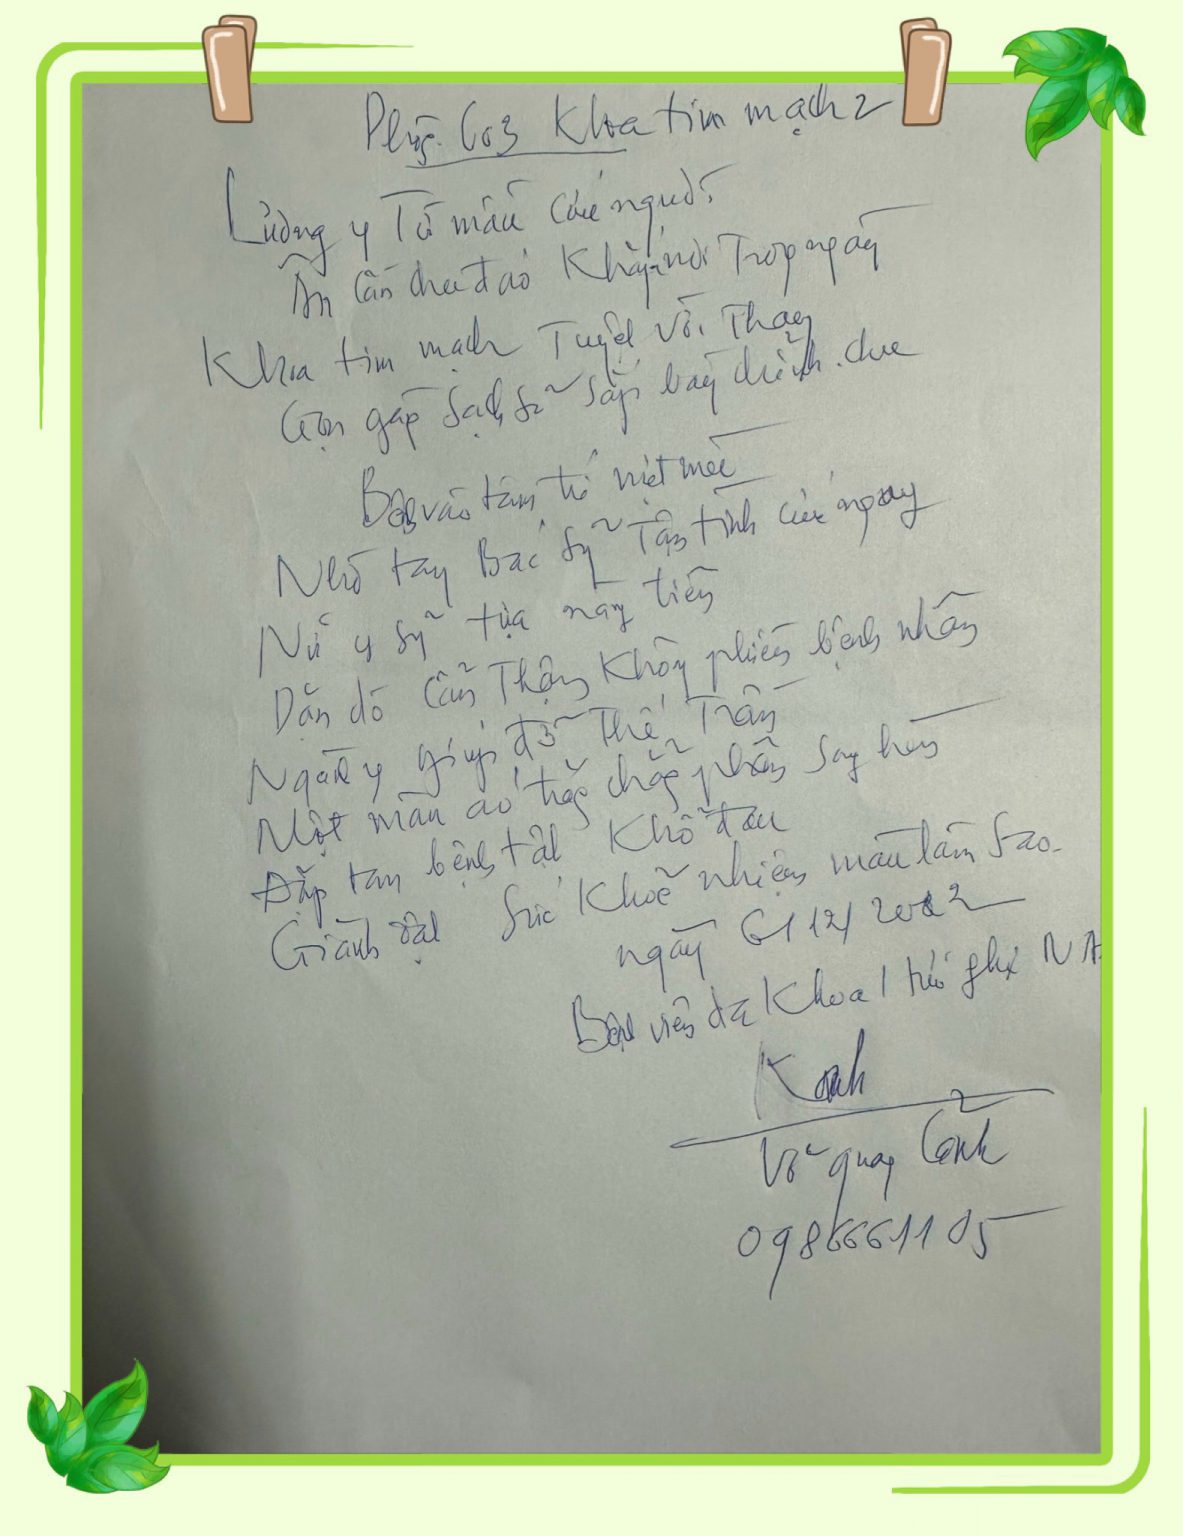 Phòng 603 Khoa tim mạch 2
Lương y Từ mẫu cứu người
Ân cần chu đáo Khắp nơi Trong ngày
Khoa tim mạch Tuyệt vời Thay
Gọn gáp sạch sẽ sắp bày chỉnh chu
Bệnh vào tâm trí mịt mù
Nhờ tay Bác sỹ Tận tình cứu ngay
Nữ y sỹ tựa nàng tiên
Dặn dò cẩn Thận Không phiền bệnh nhân
Ngành y giúp đỡ Thế Trần
Một màu áo trắng chẳng phân sang hèn
Đập tan bệnh tật Khổ đau
Giành dật sức Khoẻ nhiệm màu làm sao.
ngày 6/12/2022
Bệnh viện đa Khoa TP NA
Võ quang Cảnh
0986661105